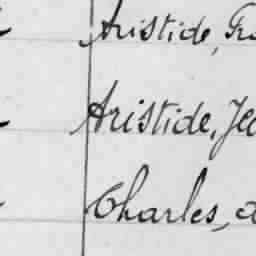 Aristide, Fr
Aristide, Je
Charles, a